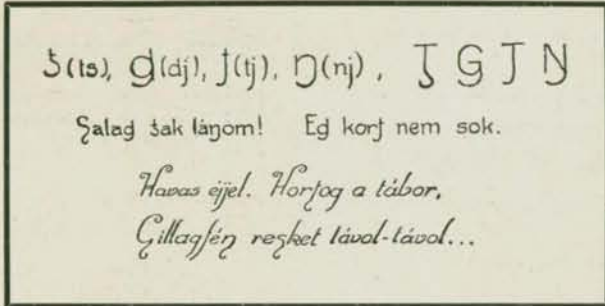 ƽ(ts), ɡ(dj), ʃ(tj), ŋ(nj), Ƽ G J Ŋ
Ȿalaɡ ƽak láŋom! Eɡ korʃ nem sok.
Havas éjjel. Horʃog a tábor,
Ƽillagféŋ reȿket távol-távol...